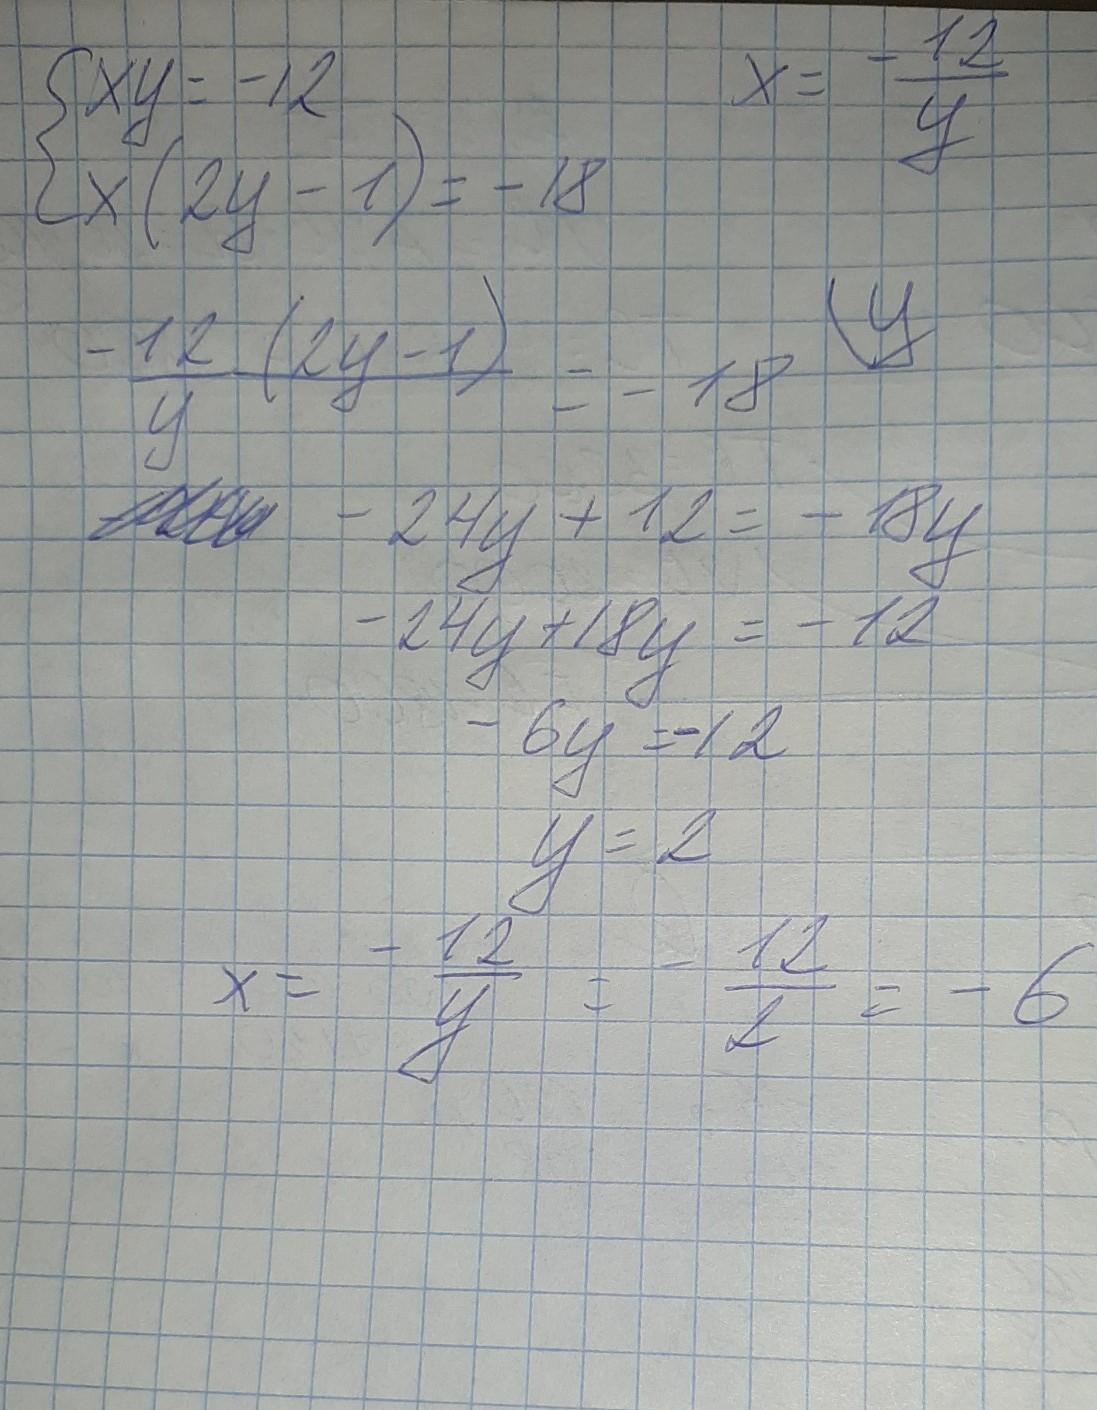 {xy = -12
x = -12/y
x(2y - 1) = -18
-12(2y - 1)/y = -18 (y
-24y + 12 = -18y
-24y + 18y = -12
-6y = -12
y = 2
x = -12/y = -12/2 = -6